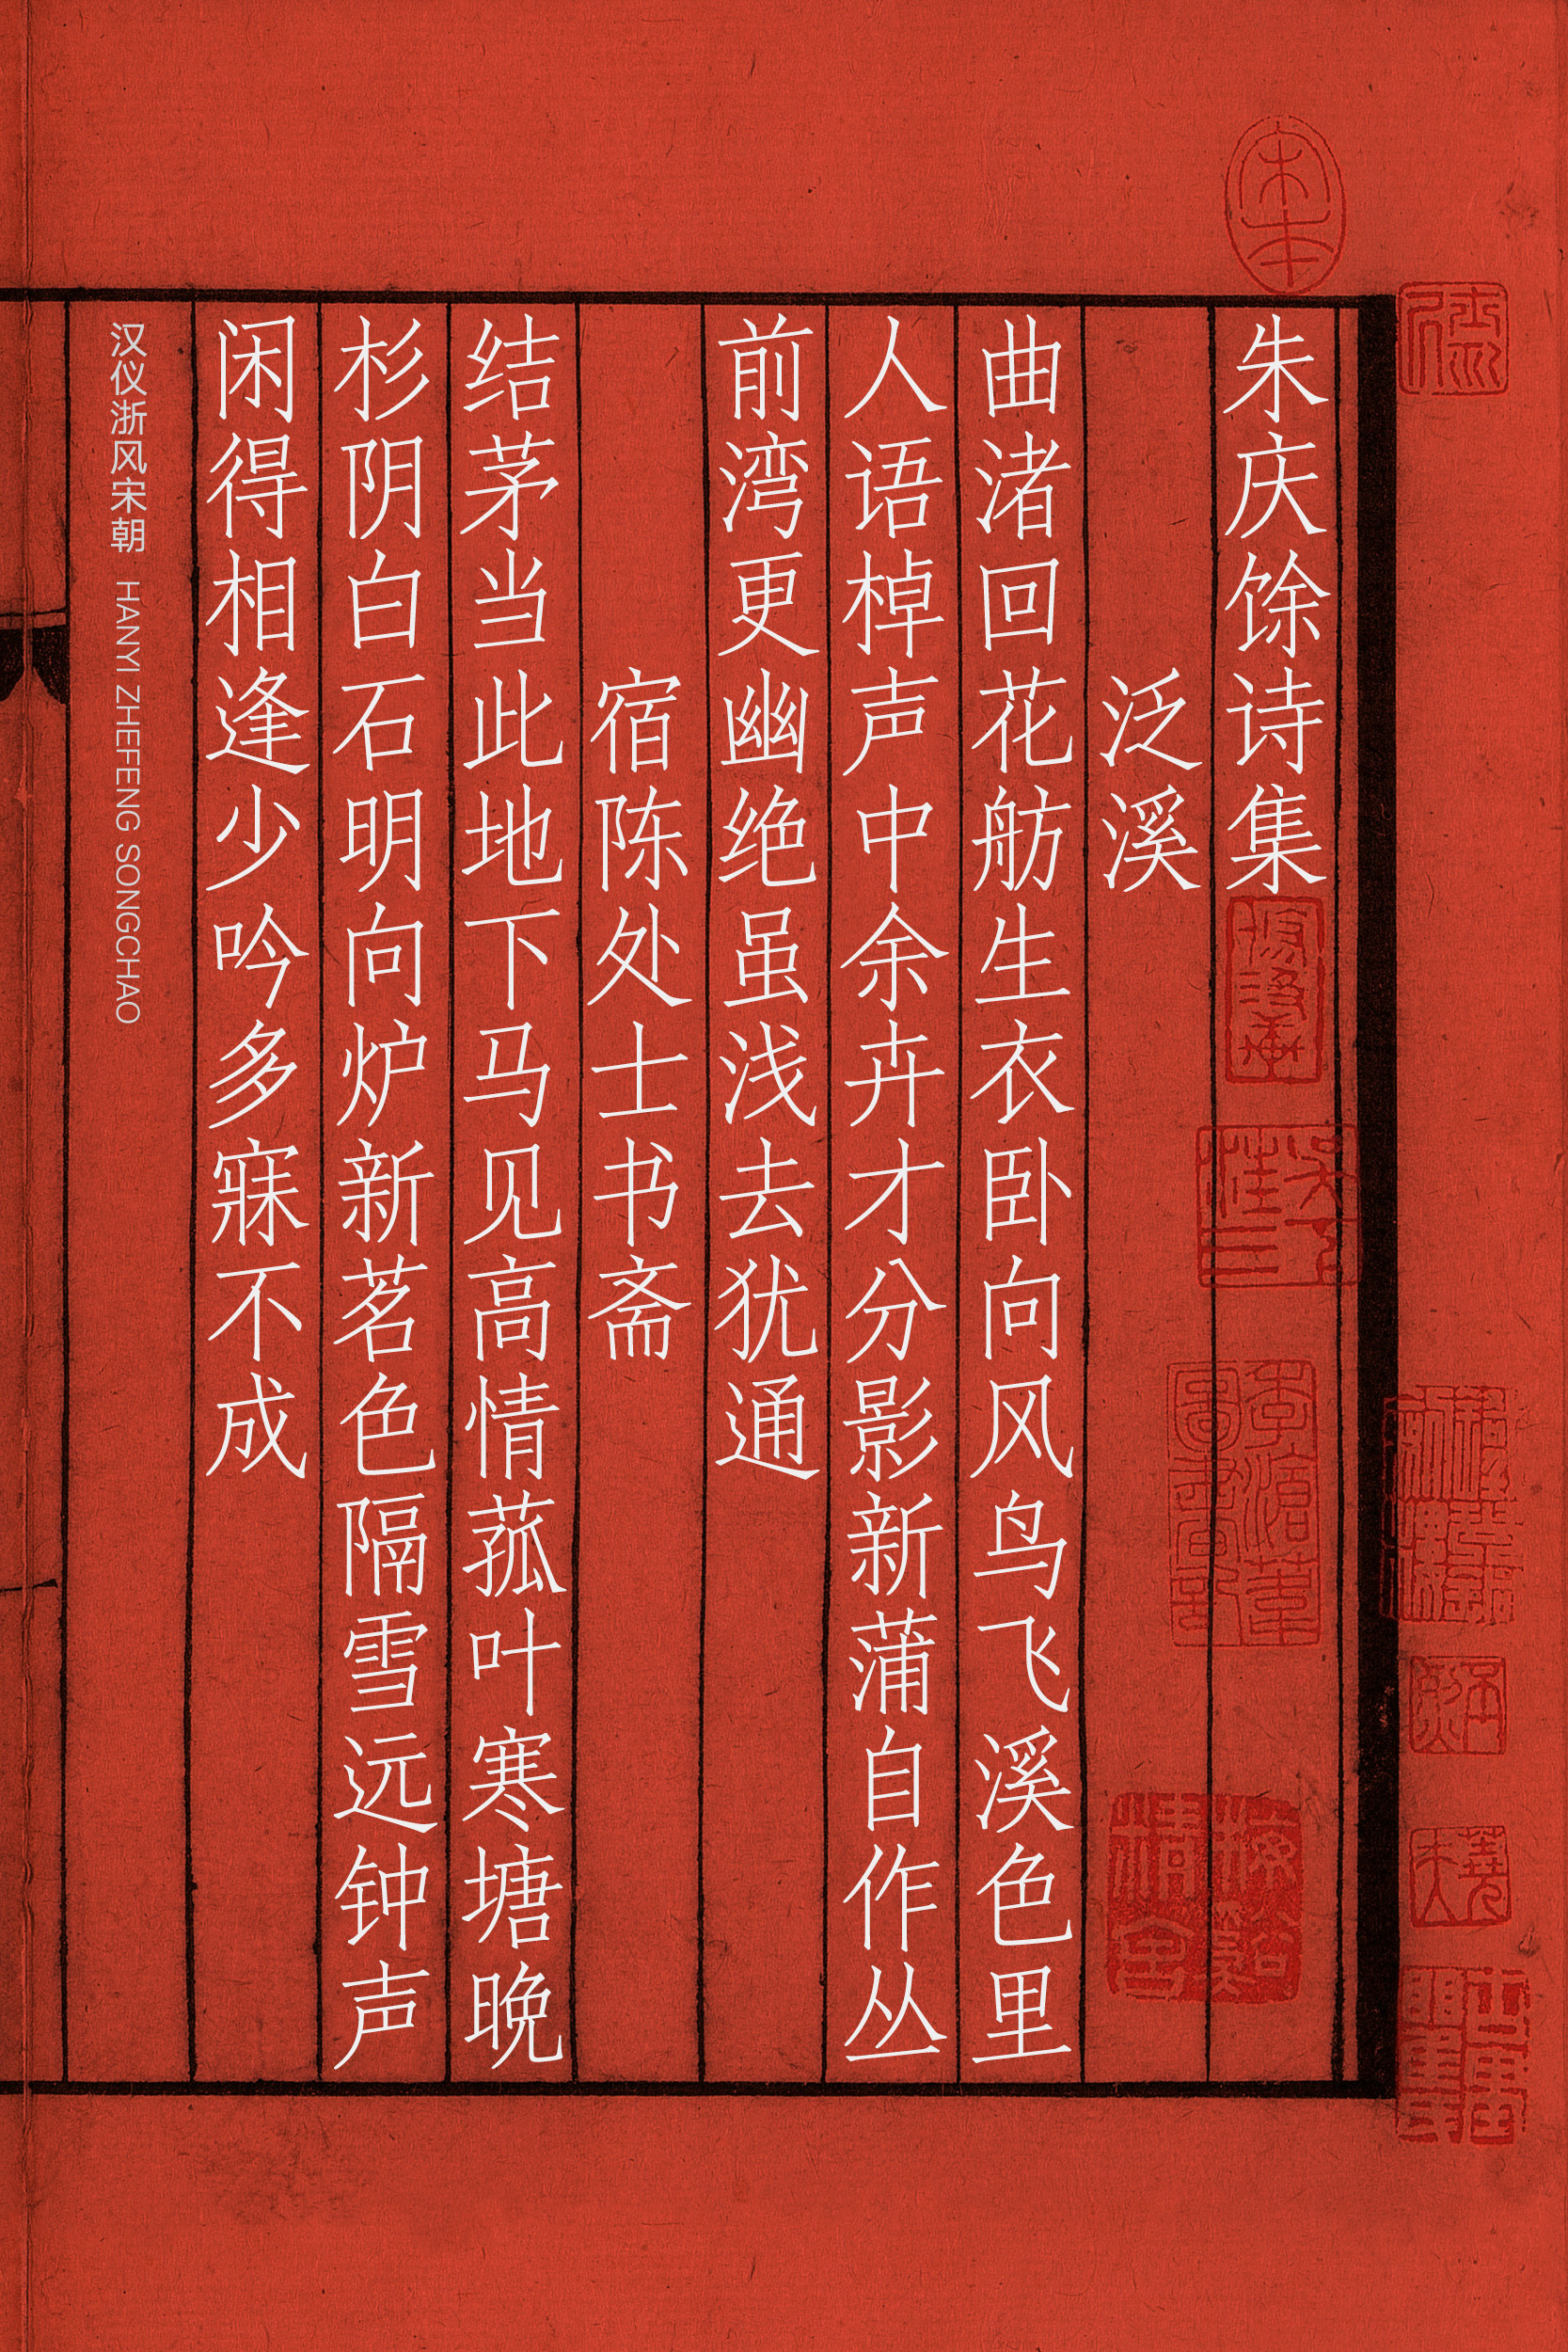 朱庆馀诗集
泛溪
曲渚回花舫生衣卧向风鸟飞溪色里
人语棹声中余卉才分影新蒲自作丛
前湾更幽绝虽浅去犹通
宿陈处士书斋
结茅当此地下马见高情菰叶寒塘晚
杉阴白石明向炉新茗色隔雪远钟声
闲得相逢少吟多寐不成
汉仪浙风宋朝 HANYI ZHEFENG SONGCHAO